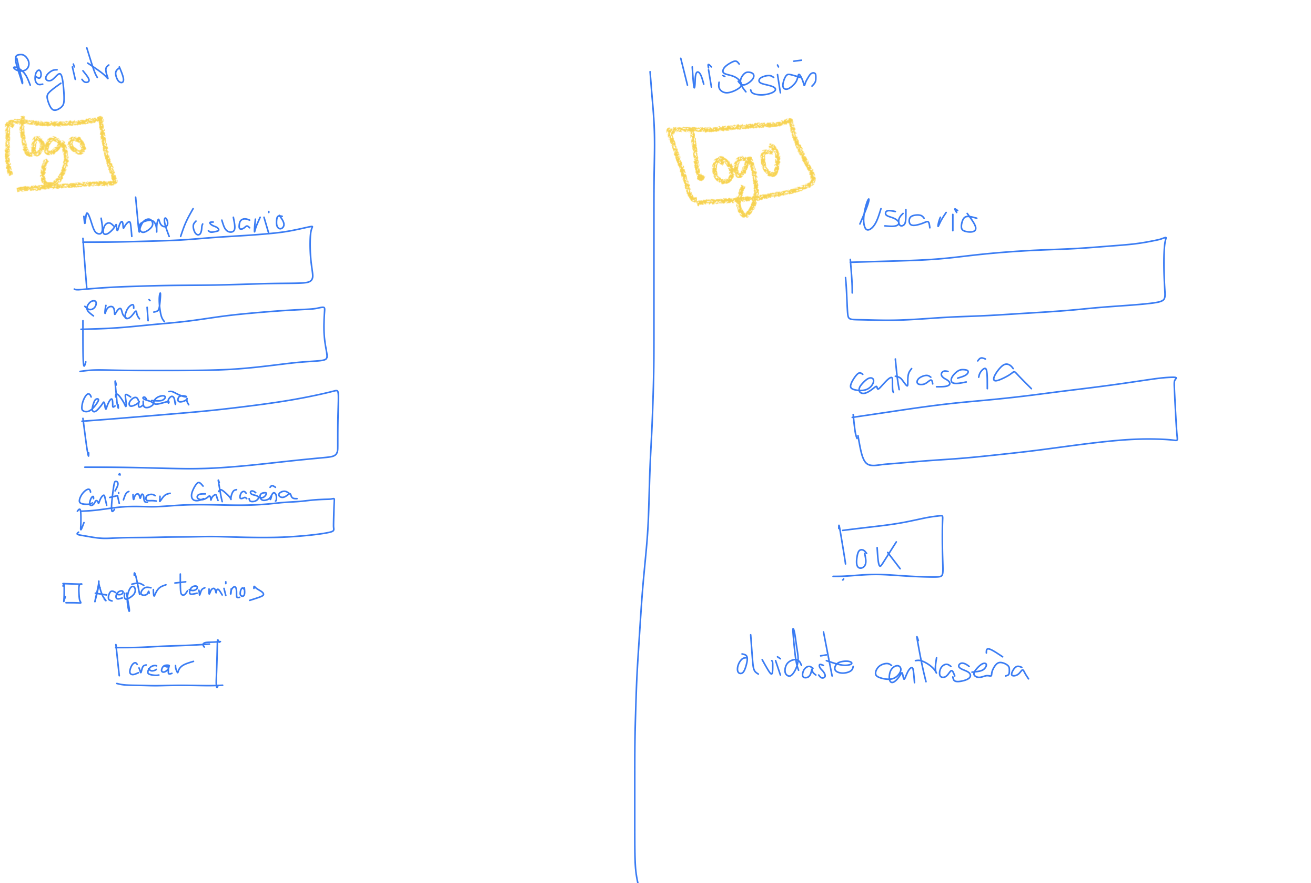 Registro
logo
Nombre/usuario
email
Contraseña
Confirmar Contraseña
Aceptar terminos
crear
IniSesión
Logo
Usuario
contraseña
OK
olvidaste contraseña